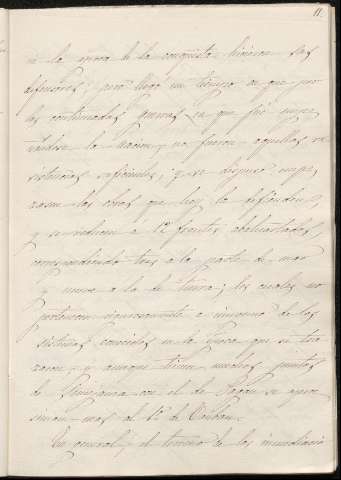 11
á la epoca de la conquista hicieron sus
defensores; pero llegó un tiempo en que por
las continuadas guerras en que fué empe
ñándose la nacion y no fueron aquellas re
sistencias suficientes, y se dispuso empe
zasen las obras que hoy la defienden,
y se reducen á 12 frentes abaluartados,
correspondiendo tres á la parte de mar
y nueve a la de tierra; los cuales no
pertenecen rigurosamente a ninguno de los
sistemas conocidos en la época que se tra
zaron, y aunque tienen muchos puntos
de semejanza con el de Pagan se apro
siman mas al 1º de Vauban.
En general, el terreno de las inmediacio